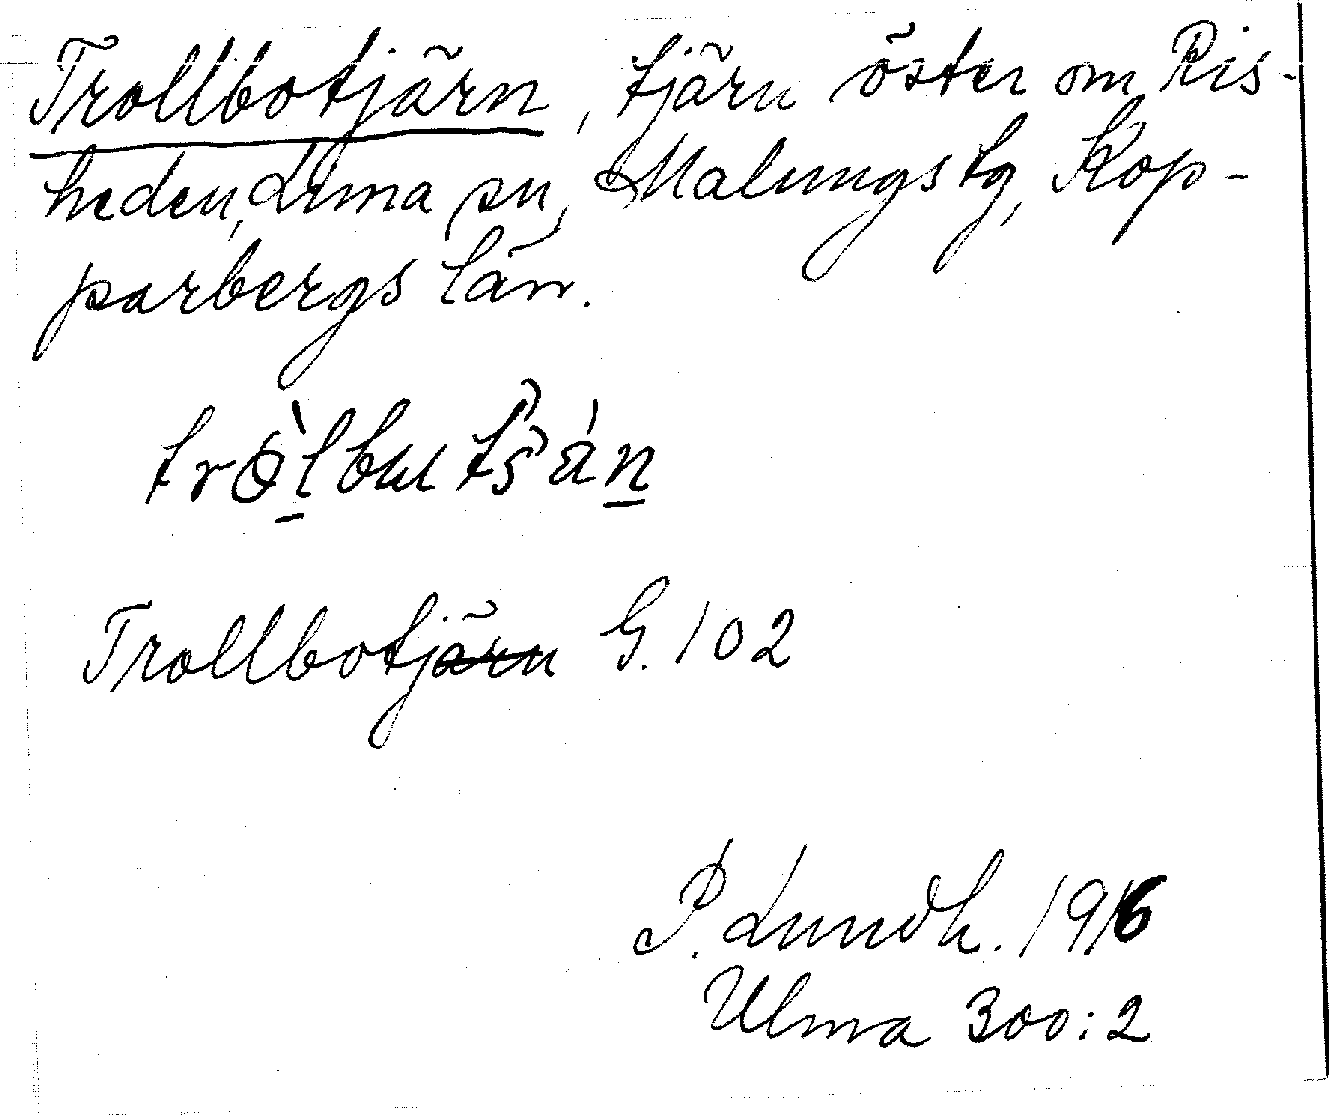 Trollbotjärn, tjärn öster om Ris-
heden, Lima sn, Malungs tg, Kop-
parbergs län.
trɵ̀lbut̂s̀án
Trollbotjärn G. 102
P. Lundh. 1916
Ulma 300:2